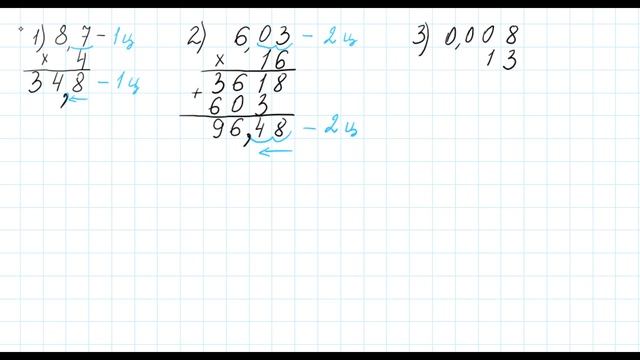 1) 8,7 – 1ц
× 4
34,8 – 1ц
2) 6,03 – 2ц
× 16
+ 3618
603
96,48 – 2ц
3) 0,008
13